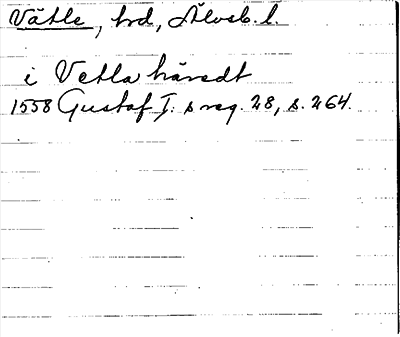 Vätle, hrd, Älvsb. l.
i Vetla häredt
1558 Gustaf I:s reg. 28, s. 264.